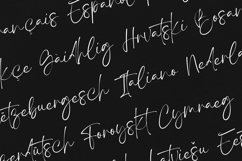 Français Español
kçe Gàidhlig Hrvatski Bosan
ëtzebuergesch Italiano Nederla
Føroyskt Cymraeg